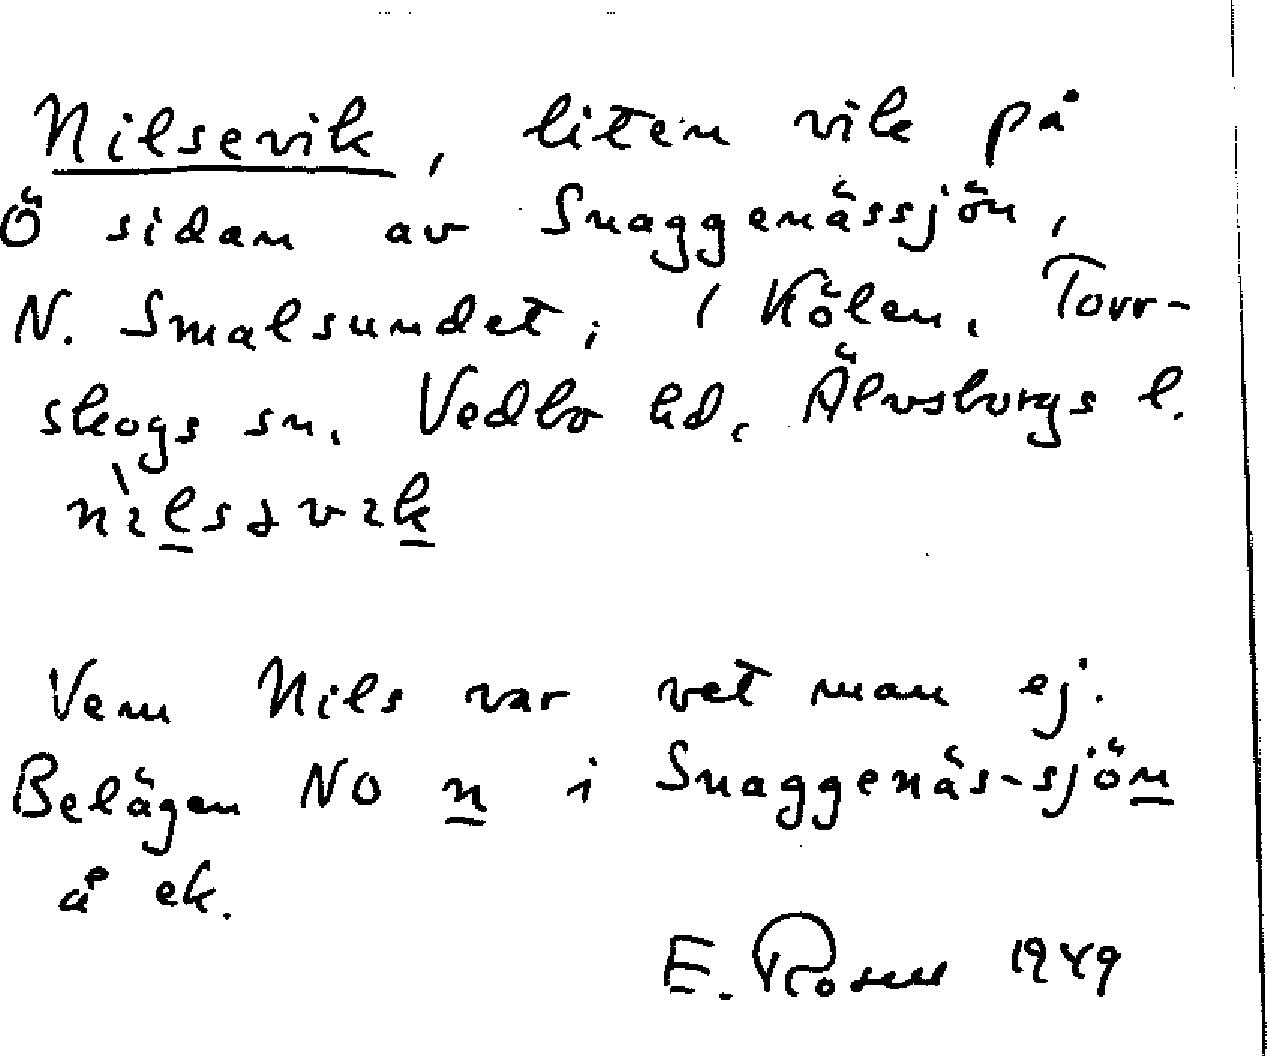 Nilsevik, liten vik på
Ö sidan av Snaggenässjön,
N. Smalsundet, i Kölen, Torr-
skogs sn. Vedbo hd, Älvsborgs l.
nìlsəvik
Vem Nils var vet man ej.
Belägen NO n i Snaggenäs-sjön
å ek.
E. Rosell 1949